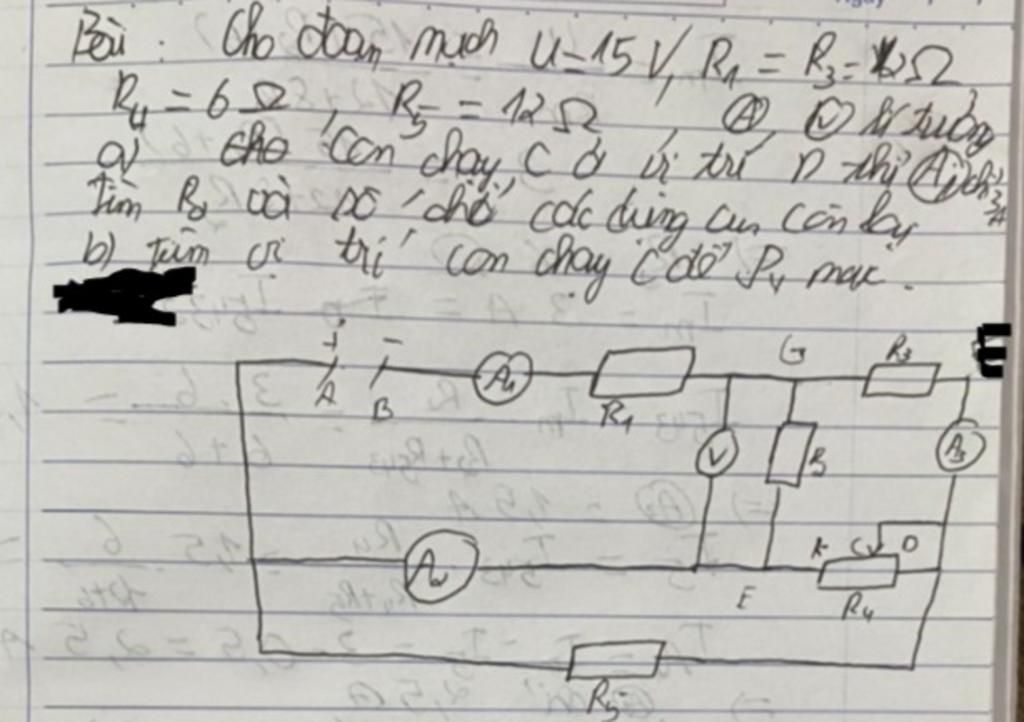 Bài : Cho đoạn mạch U=15 V, R1 = R3 = 2Ω
R4 = 6 Ω , R5 = 12 Ω , (A), (V) lí tưởng
a) cho con chạy C ở vị trí D thì (A1) chỉ 3A
Tìm R2 và số chỉ các dụng cụ còn lại
b) Tìm vị trí con chạy C để Pv max .
+ - G R3 E
A B A1 R1
V R2 A3
A2 K C D
E R4
R5